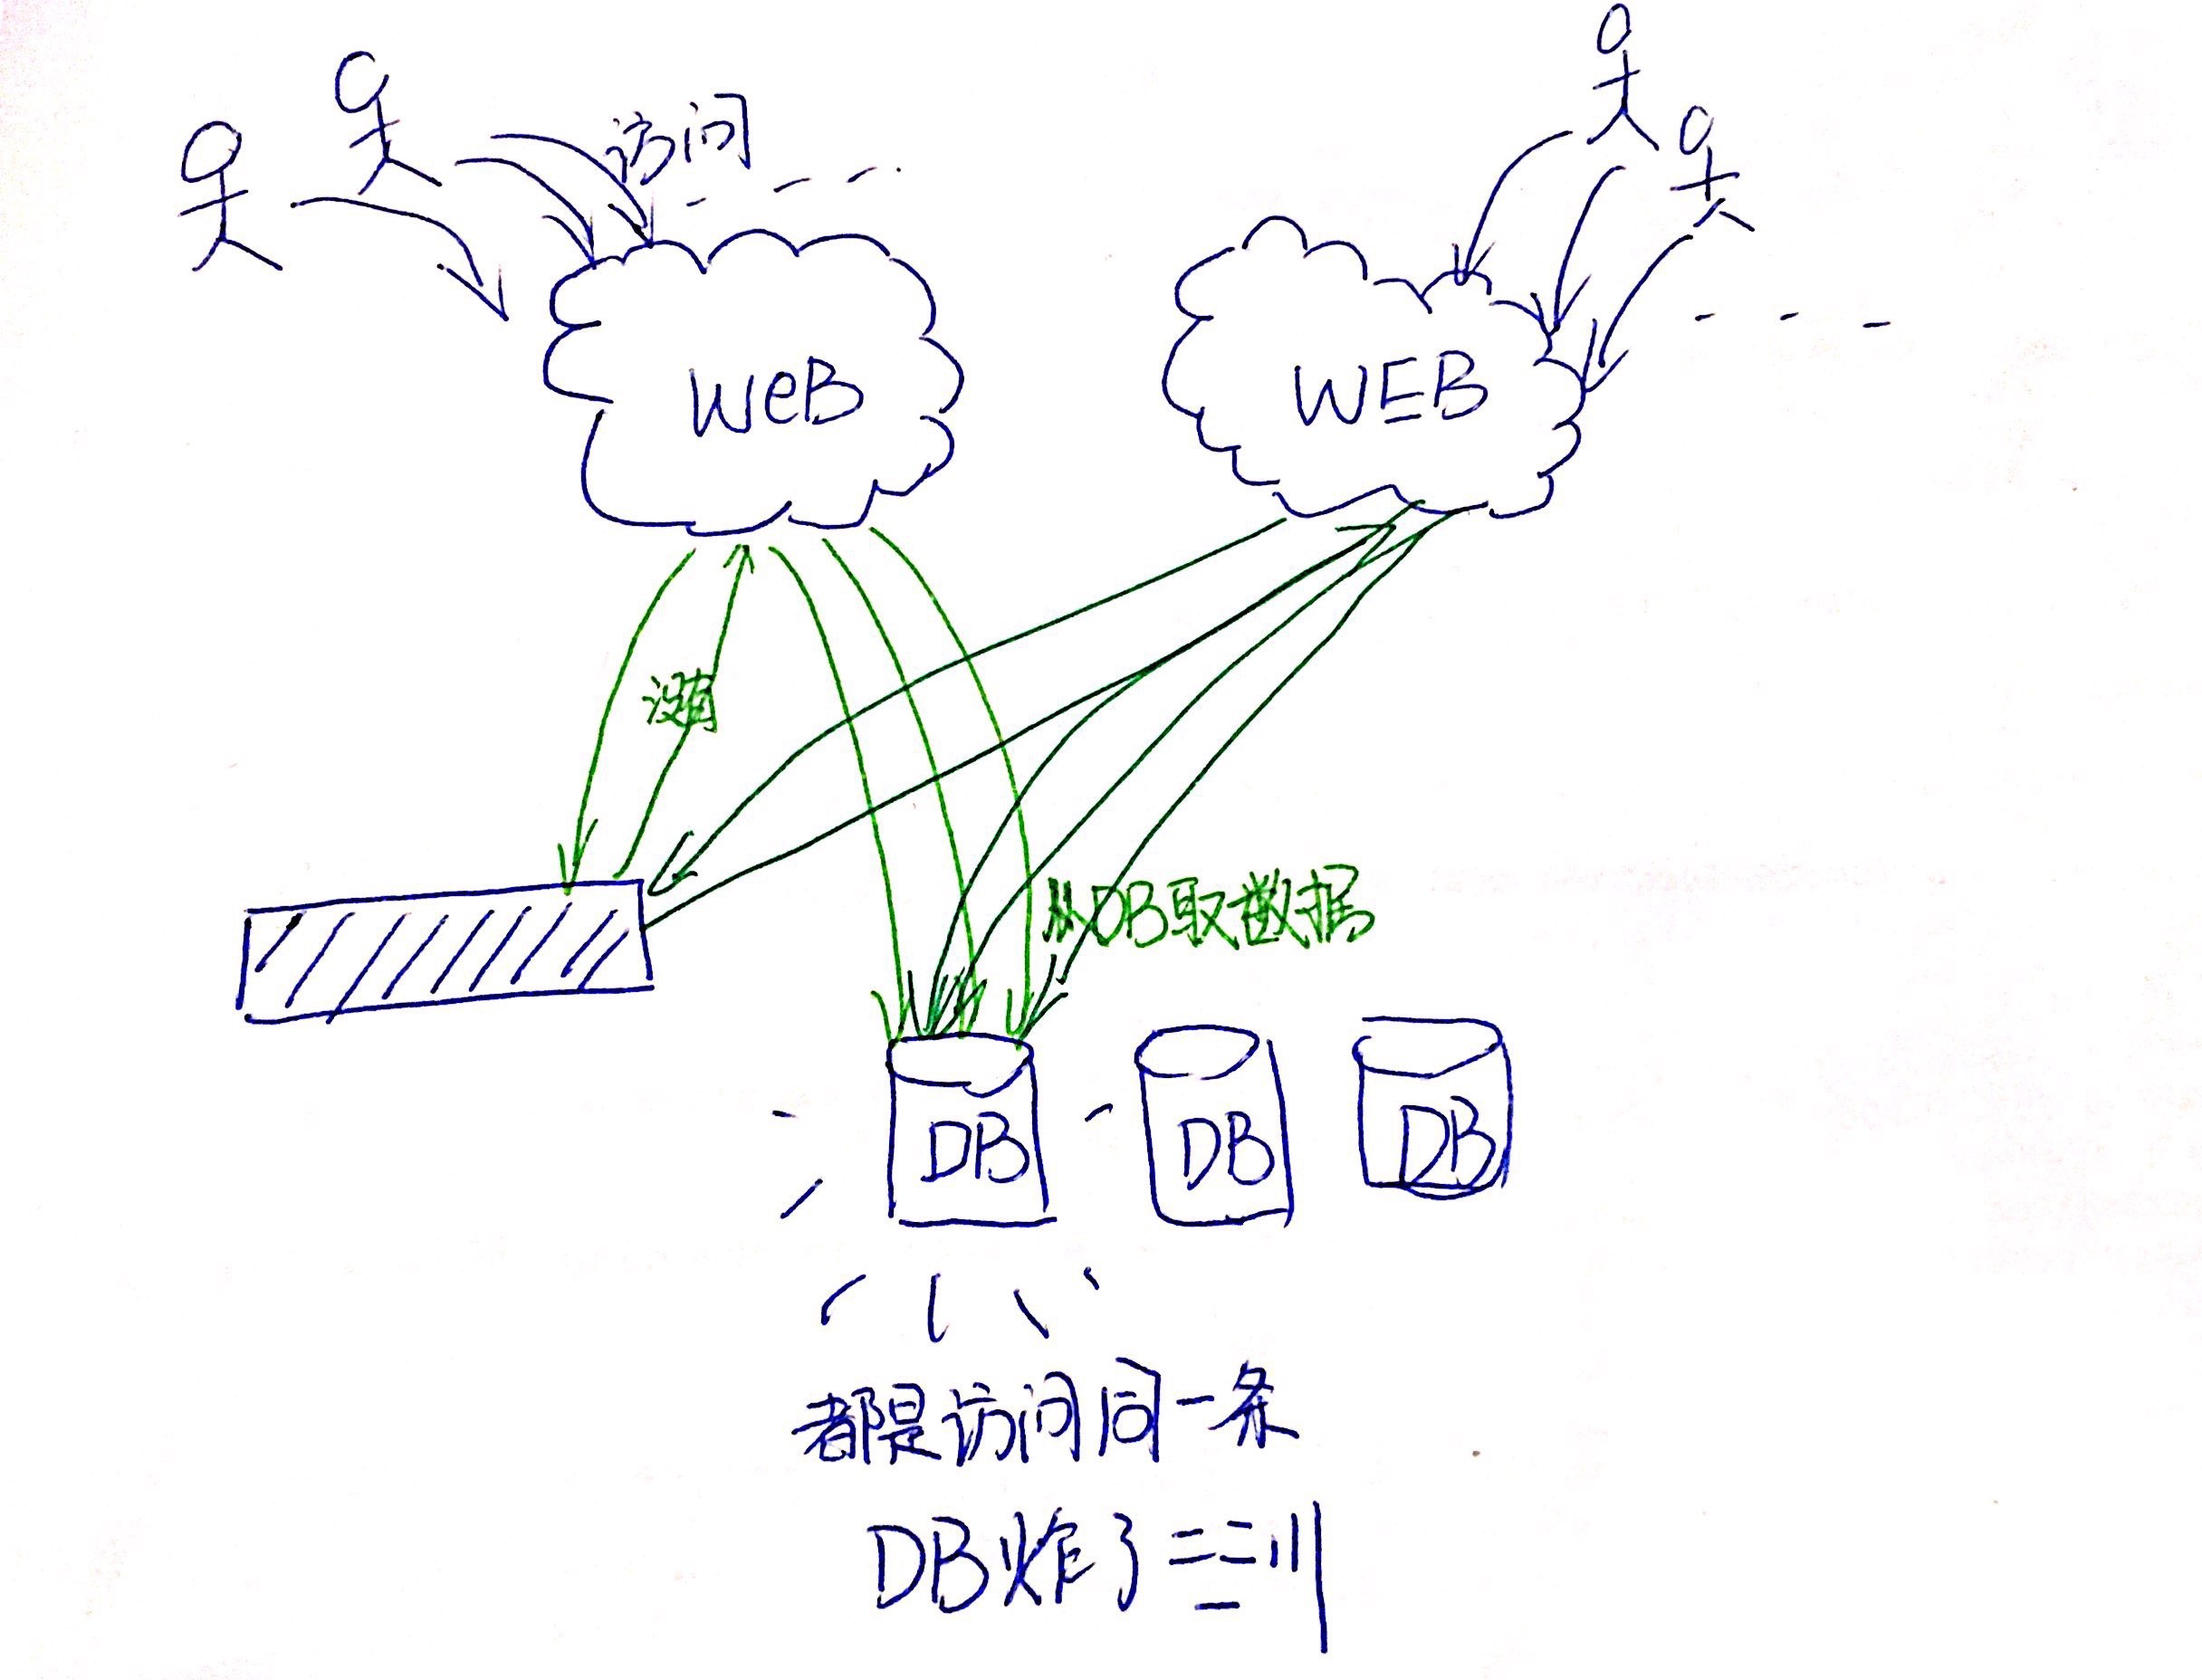 访问
WeB
WEB
没有
从DB取数据
DB
DB
DB
都是访问同一条
DB炸了